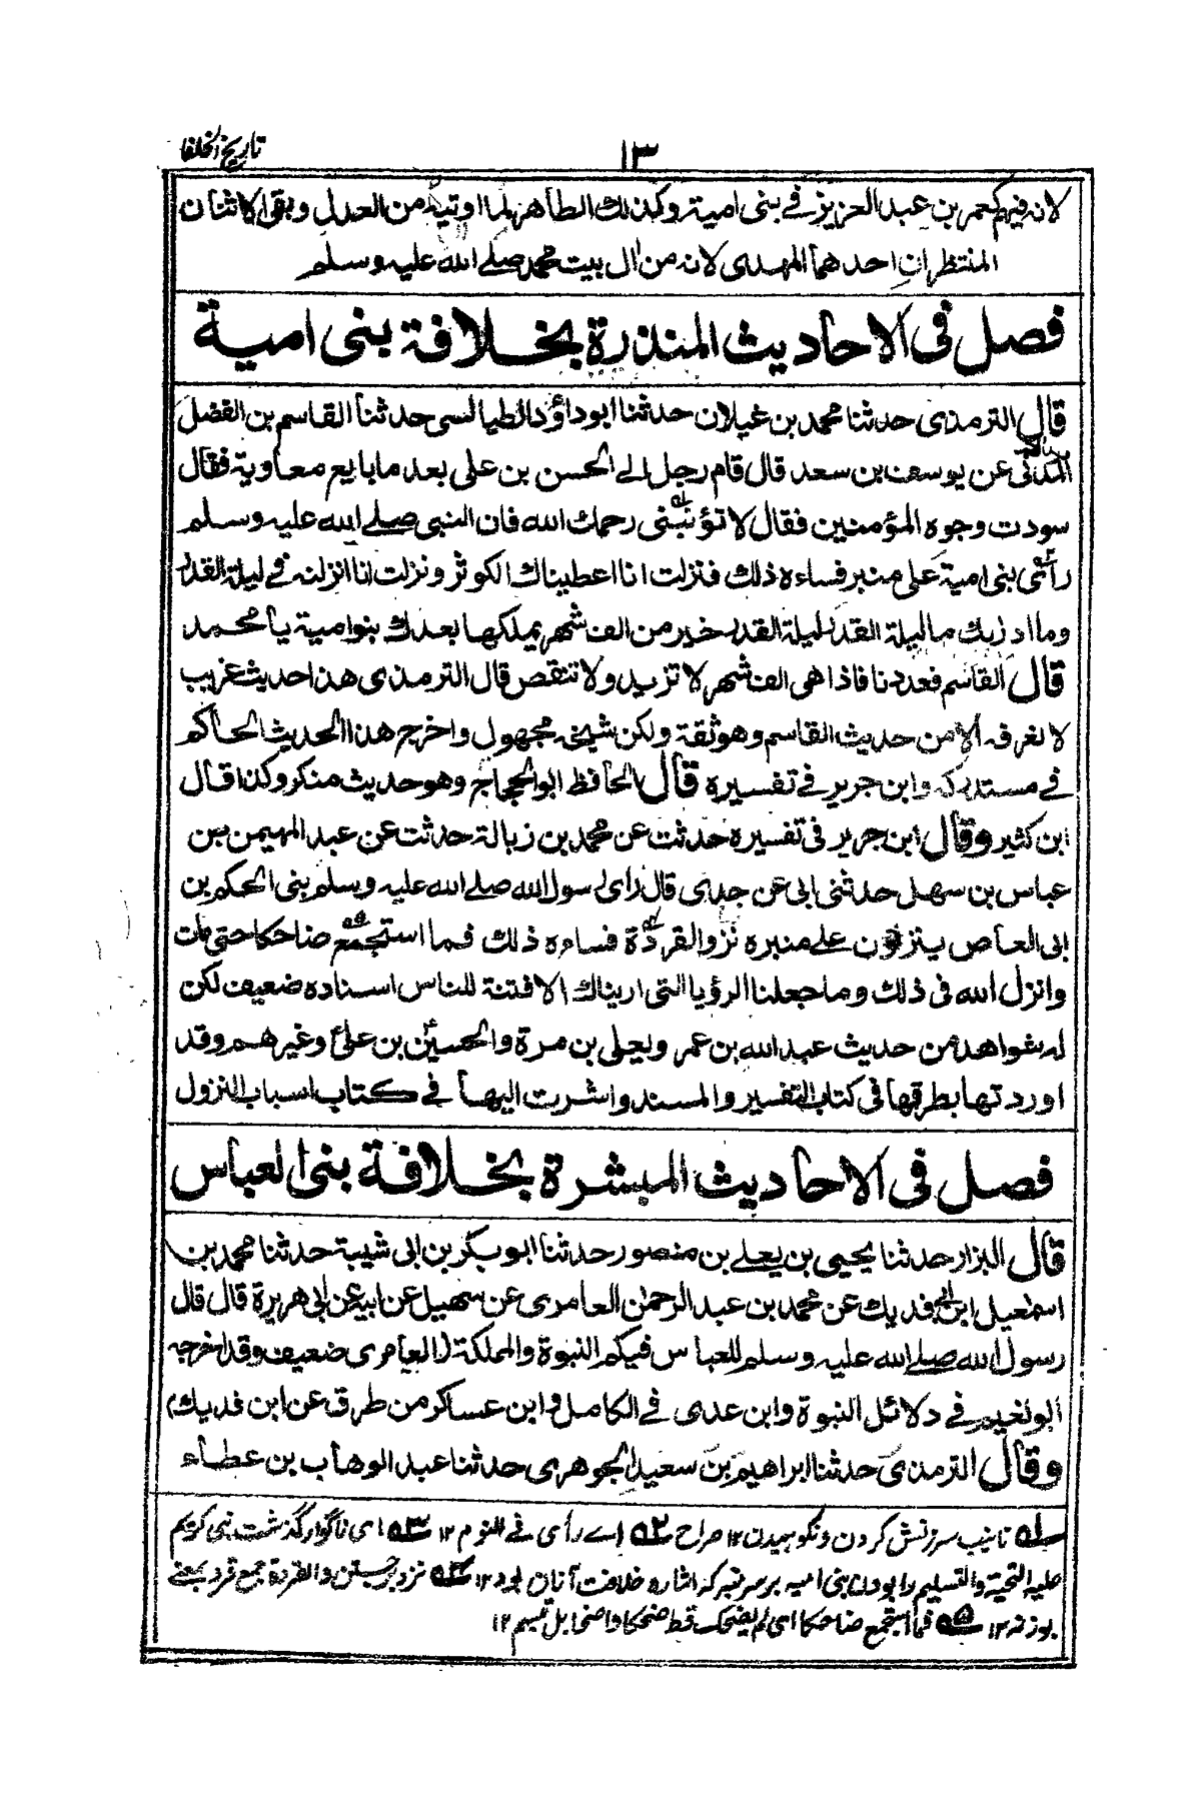 ١٣
تاريخ الخلفا
لانه فيهم كعمر بن عبد العزيز في بنى امية وكذلك الطاهر لما اوتيه من العدل وبقى الاثنان
المنتظران احدهما المهدى لانه من ال بيت محمد صلے الله عليه وسلم
فصل فى الاحاديث المنذرة بخلافة بنى امية
قال الترمذى حدثنا محمد بن غيلان حدثنا ابو داؤد الطيالسى حدثنا القاسم بن الفضل
المدنى عن يوسف بن سعد قال قام رجل الے الحسن بن على بعد ما بايع معاوية فقال
سودت وجوه المؤمنين فقال لا تؤنبنى رحمك الله فان النبى صلے الله عليه وسلم
رأى بنى امية على منبر فساءه ذلك فنزلت انا اعطيناك الكوثر ونزلت انا انزلنه في ليلة القدر
وما ادريك ما ليلة القدر ليلة القدر خير من الف شهر يملكها بعدك بنو امية يا محمد
قال القاسم فعددنا فاذا هى الف شهر لا تزيد ولا تنقص قال الترمذى هذا حديث غريب
لا نعرفه الا من حديث القاسم وهو ثقة ولكن شيخه مجهول واخرج هذا الحديث الحاكم
في مستدركه وابن جرير في تفسيره قال الحافظ ابو الحجاج وهو حديث منكر وكذا قال
ابن كثير وقال ابن جرير فى تفسيره حدثت عن محمد بن زبالة حدثت عن عبد المهيمن بن
عباس بن سهل حدثنى ابى عن جدى قال رأى رسول الله صلے الله عليه وسلم بنى الحكم بن
ابى العاص ينزون علے منبره نزو القردة فساءه ذلك فما استجمع ضاحكا حتى مات
وانزل الله فى ذلك وما جعلنا الرؤيا التى اريناك الا فتنة للناس اسناده ضعيف لكن
له شواهد من حديث عبد الله بن عمر ويعلى بن مرة والحسين بن على وغيرهم وقد
اوردتها بطرقها فى كتاب التفسير والمسند واشرت اليها في كتاب اسباب النزول
فصل فى الاحاديث المبشرة بخلافة بنى العباس
قال البزار حدثنا يحيى بن يعلے بن منصور حدثنا ابو بكر بن ابى شيبة حدثنا محمد بن
اسمعيل ابن ابى فديك عن محمد بن عبد الرحمن العامرى عن سهيل عن ابيه عن ابى هريرة قال قال
رسول الله صلے الله عليه وسلم للعباس فيكم النبوة والمملكة العامرى ضعيف وقد اخرجه
ابو نعيم في دلائل النبوة وابن عدى في الكامل وابن عساكر من طرق عن ابن فديك
وقال الترمذى حدثنا ابراهيم بن سعيد الجوهرى حدثنا عبد الوهاب بن عطاء
لے تانيب سرزنش كردن ونكوهيدن ١٢ صراح ٢ے اے رأى في النوم ١٢ ٣ے اى ناگوار گذشت نبى كريم
عليه التحية والتسليم را بودن بنى اميه بر سر منبر كه اشاره خلافت آنان بود ١٢ ٤ے نزو بر جستن والقردة جمع قرد بمعنے
بوزنه ١٢ ٥ے فما استجمع ضاحكا اى لم يضحك قط ضحكا واضحا بل تبسم ١٢